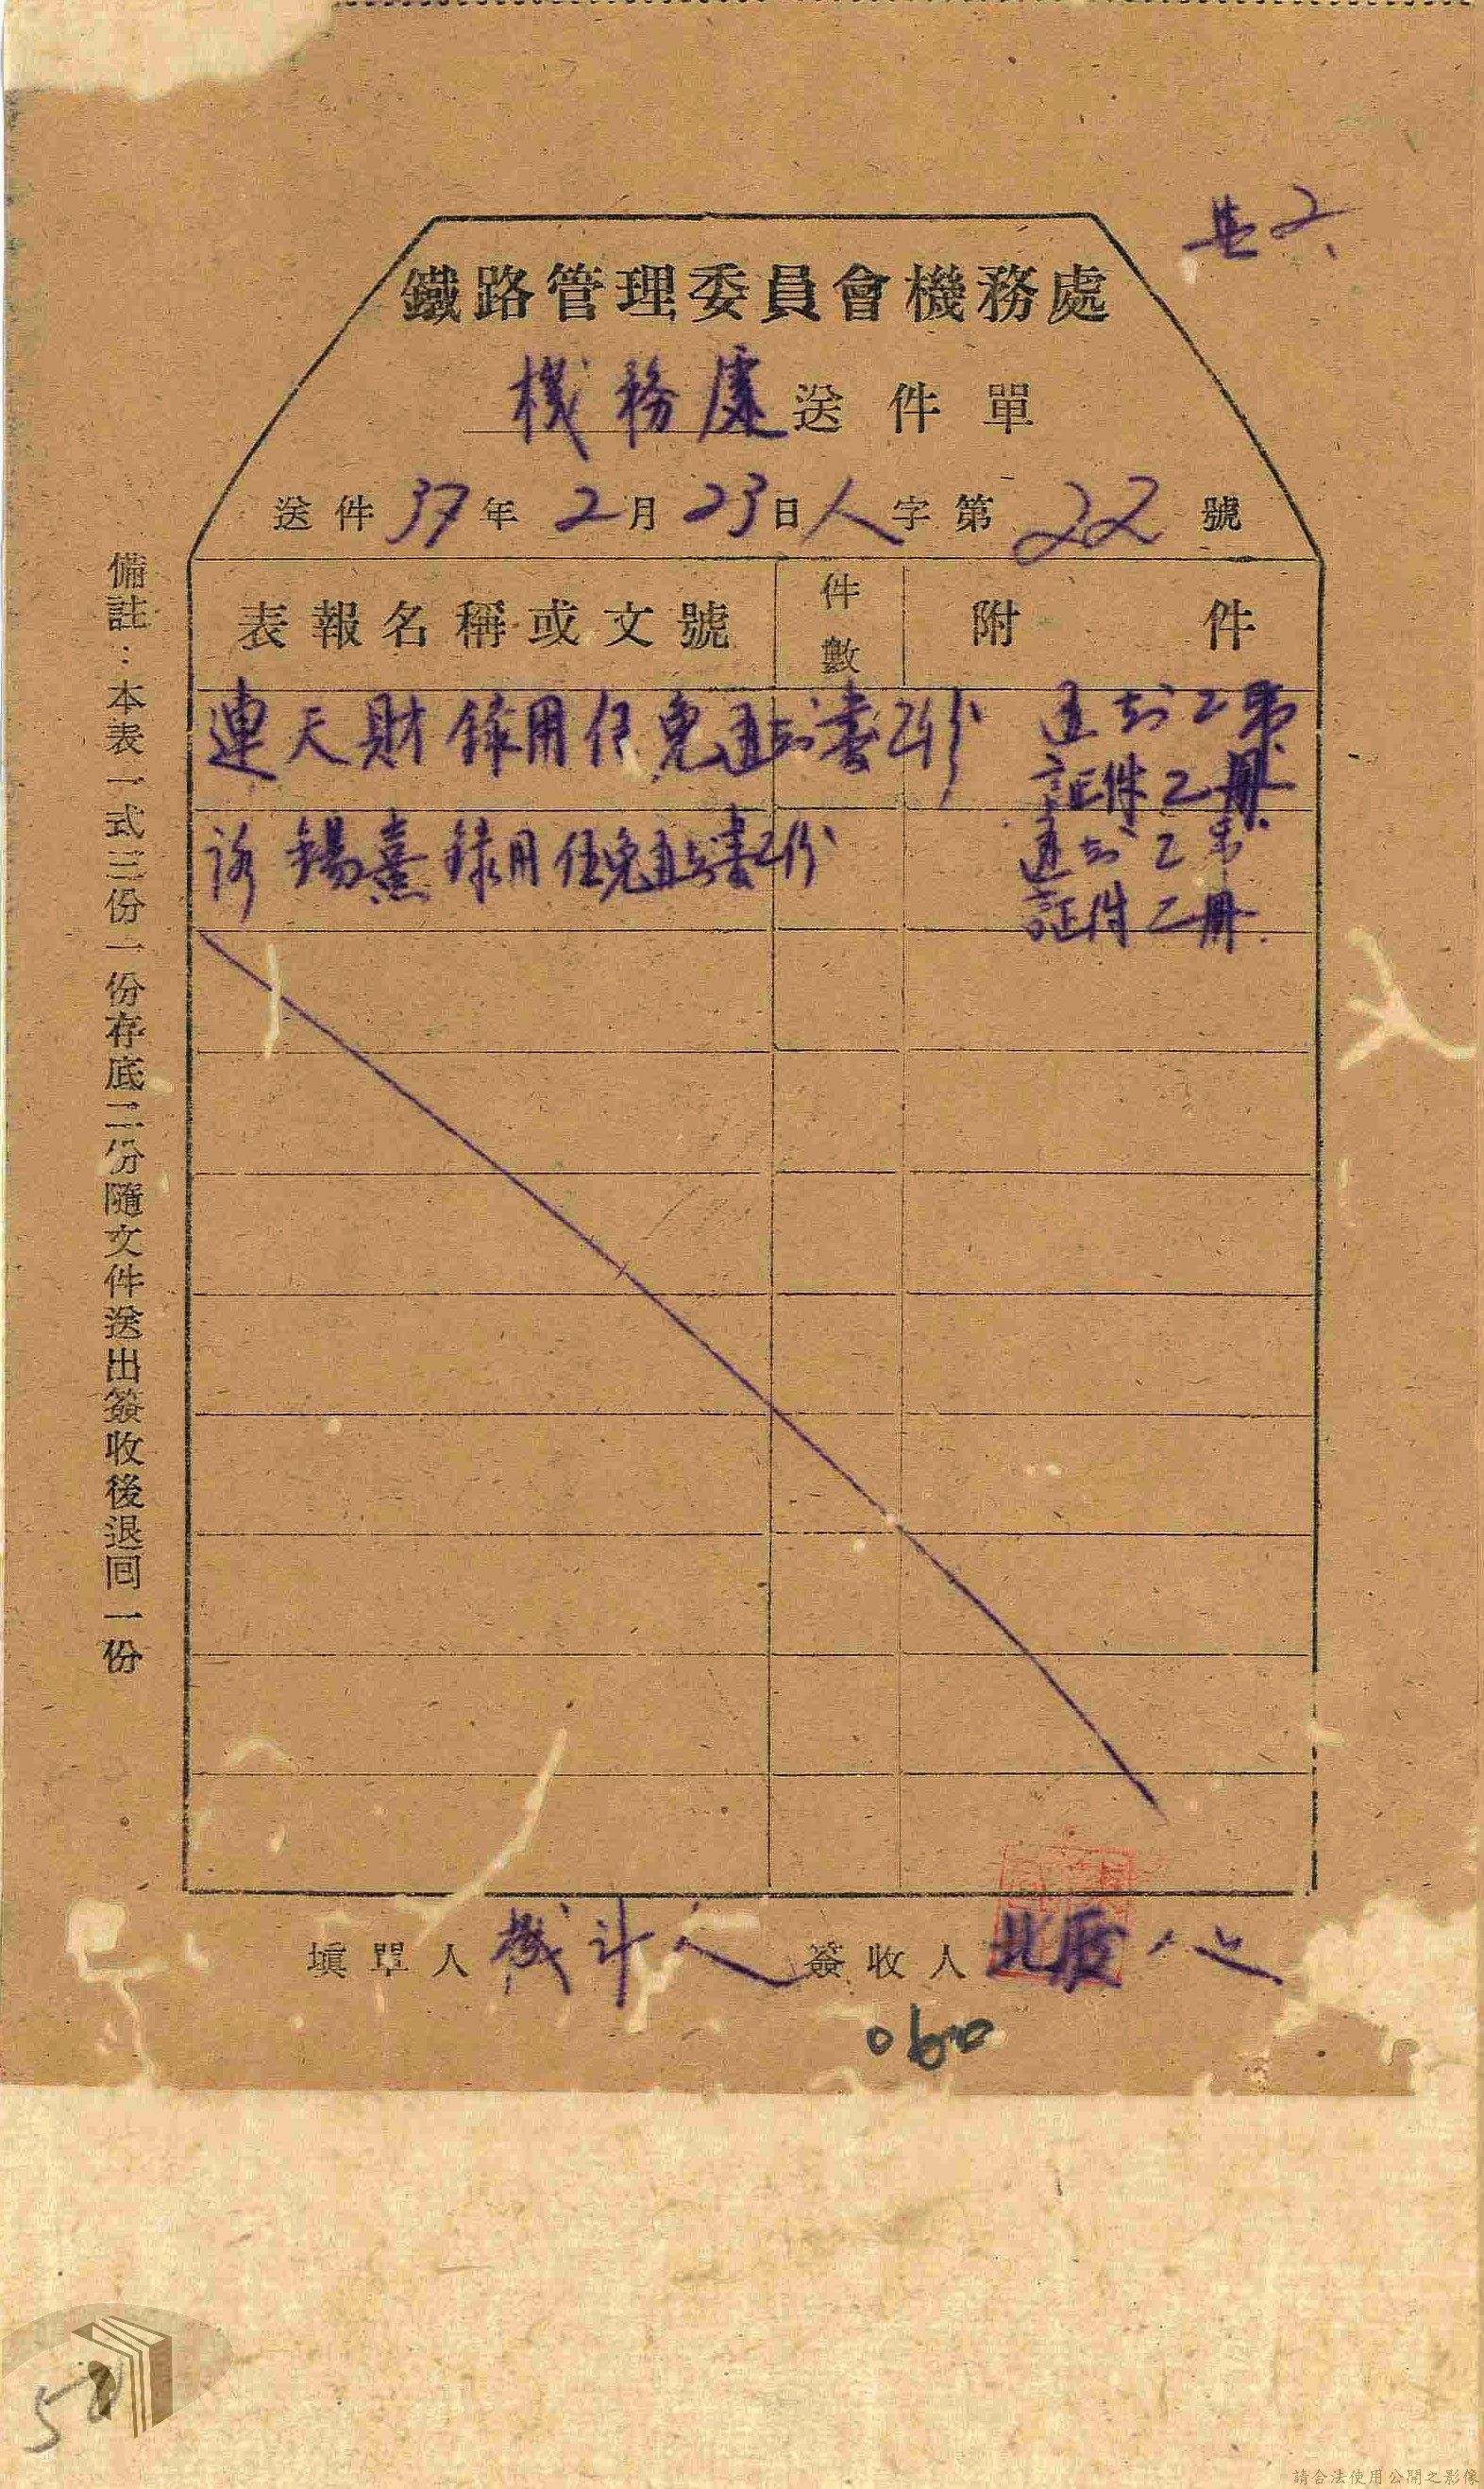 鐵路管理委員會機務處
機務處送件單
送件37年2月23日人字第22號
表報名稱或文號 件數 附件
連天財錄用任免通知書乙份 通知乙帋
証件乙冊
錫熹錄用任免通知書乙份 通知乙帋
証件乙冊
備註:本表一式三份一份存底二份隨文件送出簽收後退回一份。
填單人 機 人 簽收人 北
060
請合法使用公開之影像